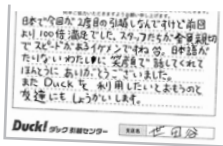 日本で今回が2度目の引越しなんですけど前回
より100倍満足でした。スタッフたちが全員親切
でスピードがあるイケメンですね笑。日本語が
たりないわたしに笑顔で話してくれて
ほんとうにありがとうございました。
またDuckを利用したいとおもうのと
友達にもしょうかいします。
Duck! ダック引越センター
世田谷